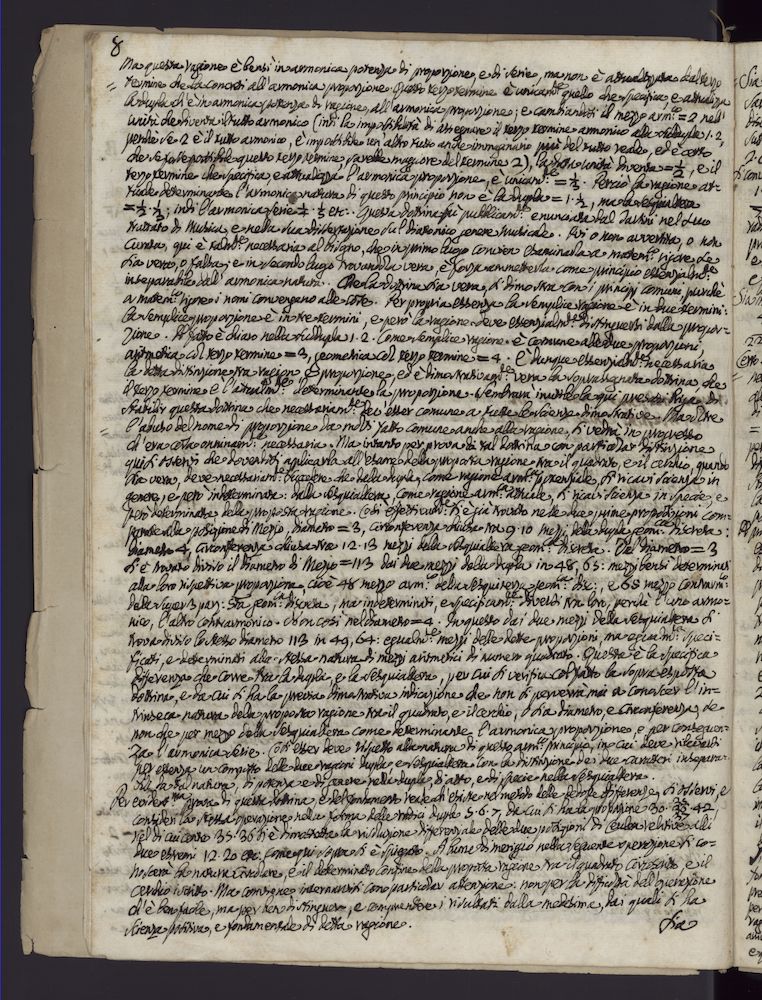 8
Ma questa ragione è bensì in armonica potenza di proporzione, e di serie, ma non è attualizzata dal terzo
= termine che la concreti all'armonica proporzione. Questo terzo termine è unicam.te quello che specifica, e attualizza
la dupla ch'è in armonica potenza di ragione, all'armonica proporzione; e cambiandosi il mezzo arm.co = 2 nell'
unità che diventa il tutto armonico (indi la impossibilità di assegnare il terzo termine armonico alla suddupla 1. 2,
perchè se 2 è il tutto armonico, è impossibile un altro tutto anche immaginario più del tutto reale, ed è certo
che se fosse possibile questo terzo termine sarebbe maggiore del termine 2), la stessa unità diventa = ½, e il
terzo termine che specifica e attualizza l'armonica proporzione, è unicam.te = ⅓. Perciò la ragione at-
tuale determinante l'armonica natura di questo principio non è la dupla = 1. ½, ma la sesquialtera
= ½. ⅓; indi l'armonica serie ¼. ⅕ etc. Questa dottrina fu pubblicam.te enunciata dal Tartini nel suo
Trattato di Musica, e nella sua dissertazione sul diatonico genere musicale. Ivi o non avvertita, o non
curata, qui è talm.te necessaria al bisogno, che in primo luogo convien esaminarla a matem.co rigore, se
sia vera, o falsa; e in secondo luogo trovandola vera, è forza ammetterla come principio essenzialm.te
inseparabile dall'armonica natura. Che la dottrina sia vera, si dimostra con i principj comuni, purchè
a matem.co rigore i nomi convengano alle cose. Per propria essenza la semplice ragione è in due termini:
la semplice proporzione è in tre termini, e però la ragione deve essenzialm.te distinguersi dalla propor-
zione. Il fatto è chiaro nella suddupla 1. 2. Come semplice ragione è comune alle due proporzioni,
aritmetica col terzo termine = 3, geometrica col terzo termine = 4. È dunque essenzialm.te necessaria
la detta distinzione tra ragion e proporzione, ed è dimostrativam.te vera la sopra segnata dottrina, che
il terzo termine è l'attualm.te determinante la proporzione. Sembrerà inutile la qui presa briga di
stabilir questa dottrina che necessariam.te dev'esser comune a tutte le scienze dimostrative. Ma oltre
= l'abuso del nome di proporzione da molti fatto comune anche alla ragione, si vedrà in progresso
ch'era cosa onninam.te necessaria. Ma intanto per prova di tal dottrina con particolar distinzione
qui si osservi che dovendosi applicarla all'esame della proposta ragione tra il quadrato, e il cerchio, quando
sia vera, deve necessariam.te succedere che dalla dupla, come ragione arm.ca potenziale, si ricavi scienza in
genere, e però indeterminata: dalla sesquialtera, come ragione arm.ca attuale, si ricavi scienza in specie, e
però determinata della proposta ragione. Così effettivam.te si è già trovato nelle due prime proposizioni com-
parate alla posizione di Mezio, diametro = 3, circonferenza chiusa tra 9. 10 mezzi della dupla geom.ca discreta:
diametro 4, circonferenza chiusa tra 12. 13 mezzi della sesquialtera geom.ca discreta. Dal diametro = 3
si è trovato diviso il diametro di Mezio = 113 dai due mezzi della dupla in 48, 65: mezzi bensì determinati
alla loro rispettiva proporzione, cioè 48 mezzo arm.co della sesquiterza geom.ca disc., e 65 mezzo contrarm.co
nico, l'altro contrarmonico. Non così nel diametro = 4. In questo dai due mezzi della sesquialtera si
trova diviso lo stesso diametro 113 in 49, 64: egualm.te mezzi delle dette proporzioni, ma egualm.te speci-
ficati, e determinati alla stessa natura di mezzi aritmetici di numero quadrato. Questa è la specifica
differenza che corre tra la dupla, e la sesquialtera, per cui si verifica col fatto la sopra esposta
dottrina, e da cui si ha la precisa dimostrativa indicazione che non si perverrà mai a conoscer l'in-
trinseca natura della proposta ragione tra il quadrato, e il cerchio, o sia diametro, e circonferenza, se
non che per mezzo della sesquialtera come determinante l'armonica proporzione, e per conseguen-
za l'armonica serie. Così esser deve rispetto alla natura di questo arm.co principio, in cui deve ricercarsi
per essenza un composto delle due ragioni dupla, e sesquialtera con la distinzione de' due caratteri insepara-
bili da tal natura, di potenza e di genere nella dupla, di atto, e di specie nella sesquialtera.
consideri la stessa operazione nella forma della ridotta dupla 5. 6. 7, da cui si ha la proporzione 30. 35 36. 42,
due estremi 12. 20 etc. come qui sopra si è spiegato. A lume di meriggio nella seguente operazione si co-
noscerà la natura circolare, e il determinato confine della proposta ragione tra il quadrato circoscritto, e il
cerchio iscritto. Ma conviene internarvisi con particolar attenzione; non per la difficoltà dell'operazione
ch'è ben facile, ma per ben distinguere, e comprendere i risultati dalla medesima, dai quali si ha
scienza positiva, e fondamentale di detta ragione.
Sia